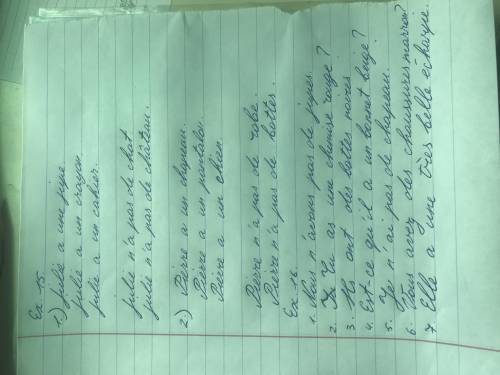 Ex. 15.
1) Julie a une jupe.
Julie a un crayon.
Julie a un cahier.
Julie n'a pas de chat
Julie n'a pas de château.
2) Pierre a un chapeau.
Pierre a un pantalon.
Pierre a un chien.
Pierre n'a pas de robe.
Pierre n'a pas de bottes.
Ex. 16.
1. Nous n'avons pas de jupes.
2. Tu as une chemise rouge?
3. Ils ont des bottes noires
4. Est-ce qu'il a un bonnet beige?
5. Je n'ai pas de chapeau.
6. Vous avez des chaussures marron?
7. Elle a une très belle écharpe.